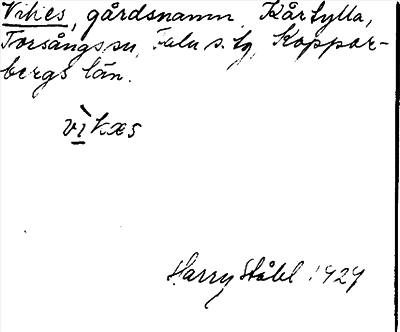 Vikes, gårdsnamn. Kårtylla,
Torsångs sn, Falu s. tg, Koppar-
bergs län.
vìkæs
Harry Ståhl 1929